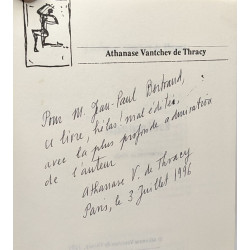 Athanase Vantchev de Thracy
Pour M. Jean-Paul Bertrand,
ce livre, hélas! mal édité,
avec la plus profonde admiration
de l'auteur
Athanase V. de Thracy
Paris, le 3 Juillet 1996